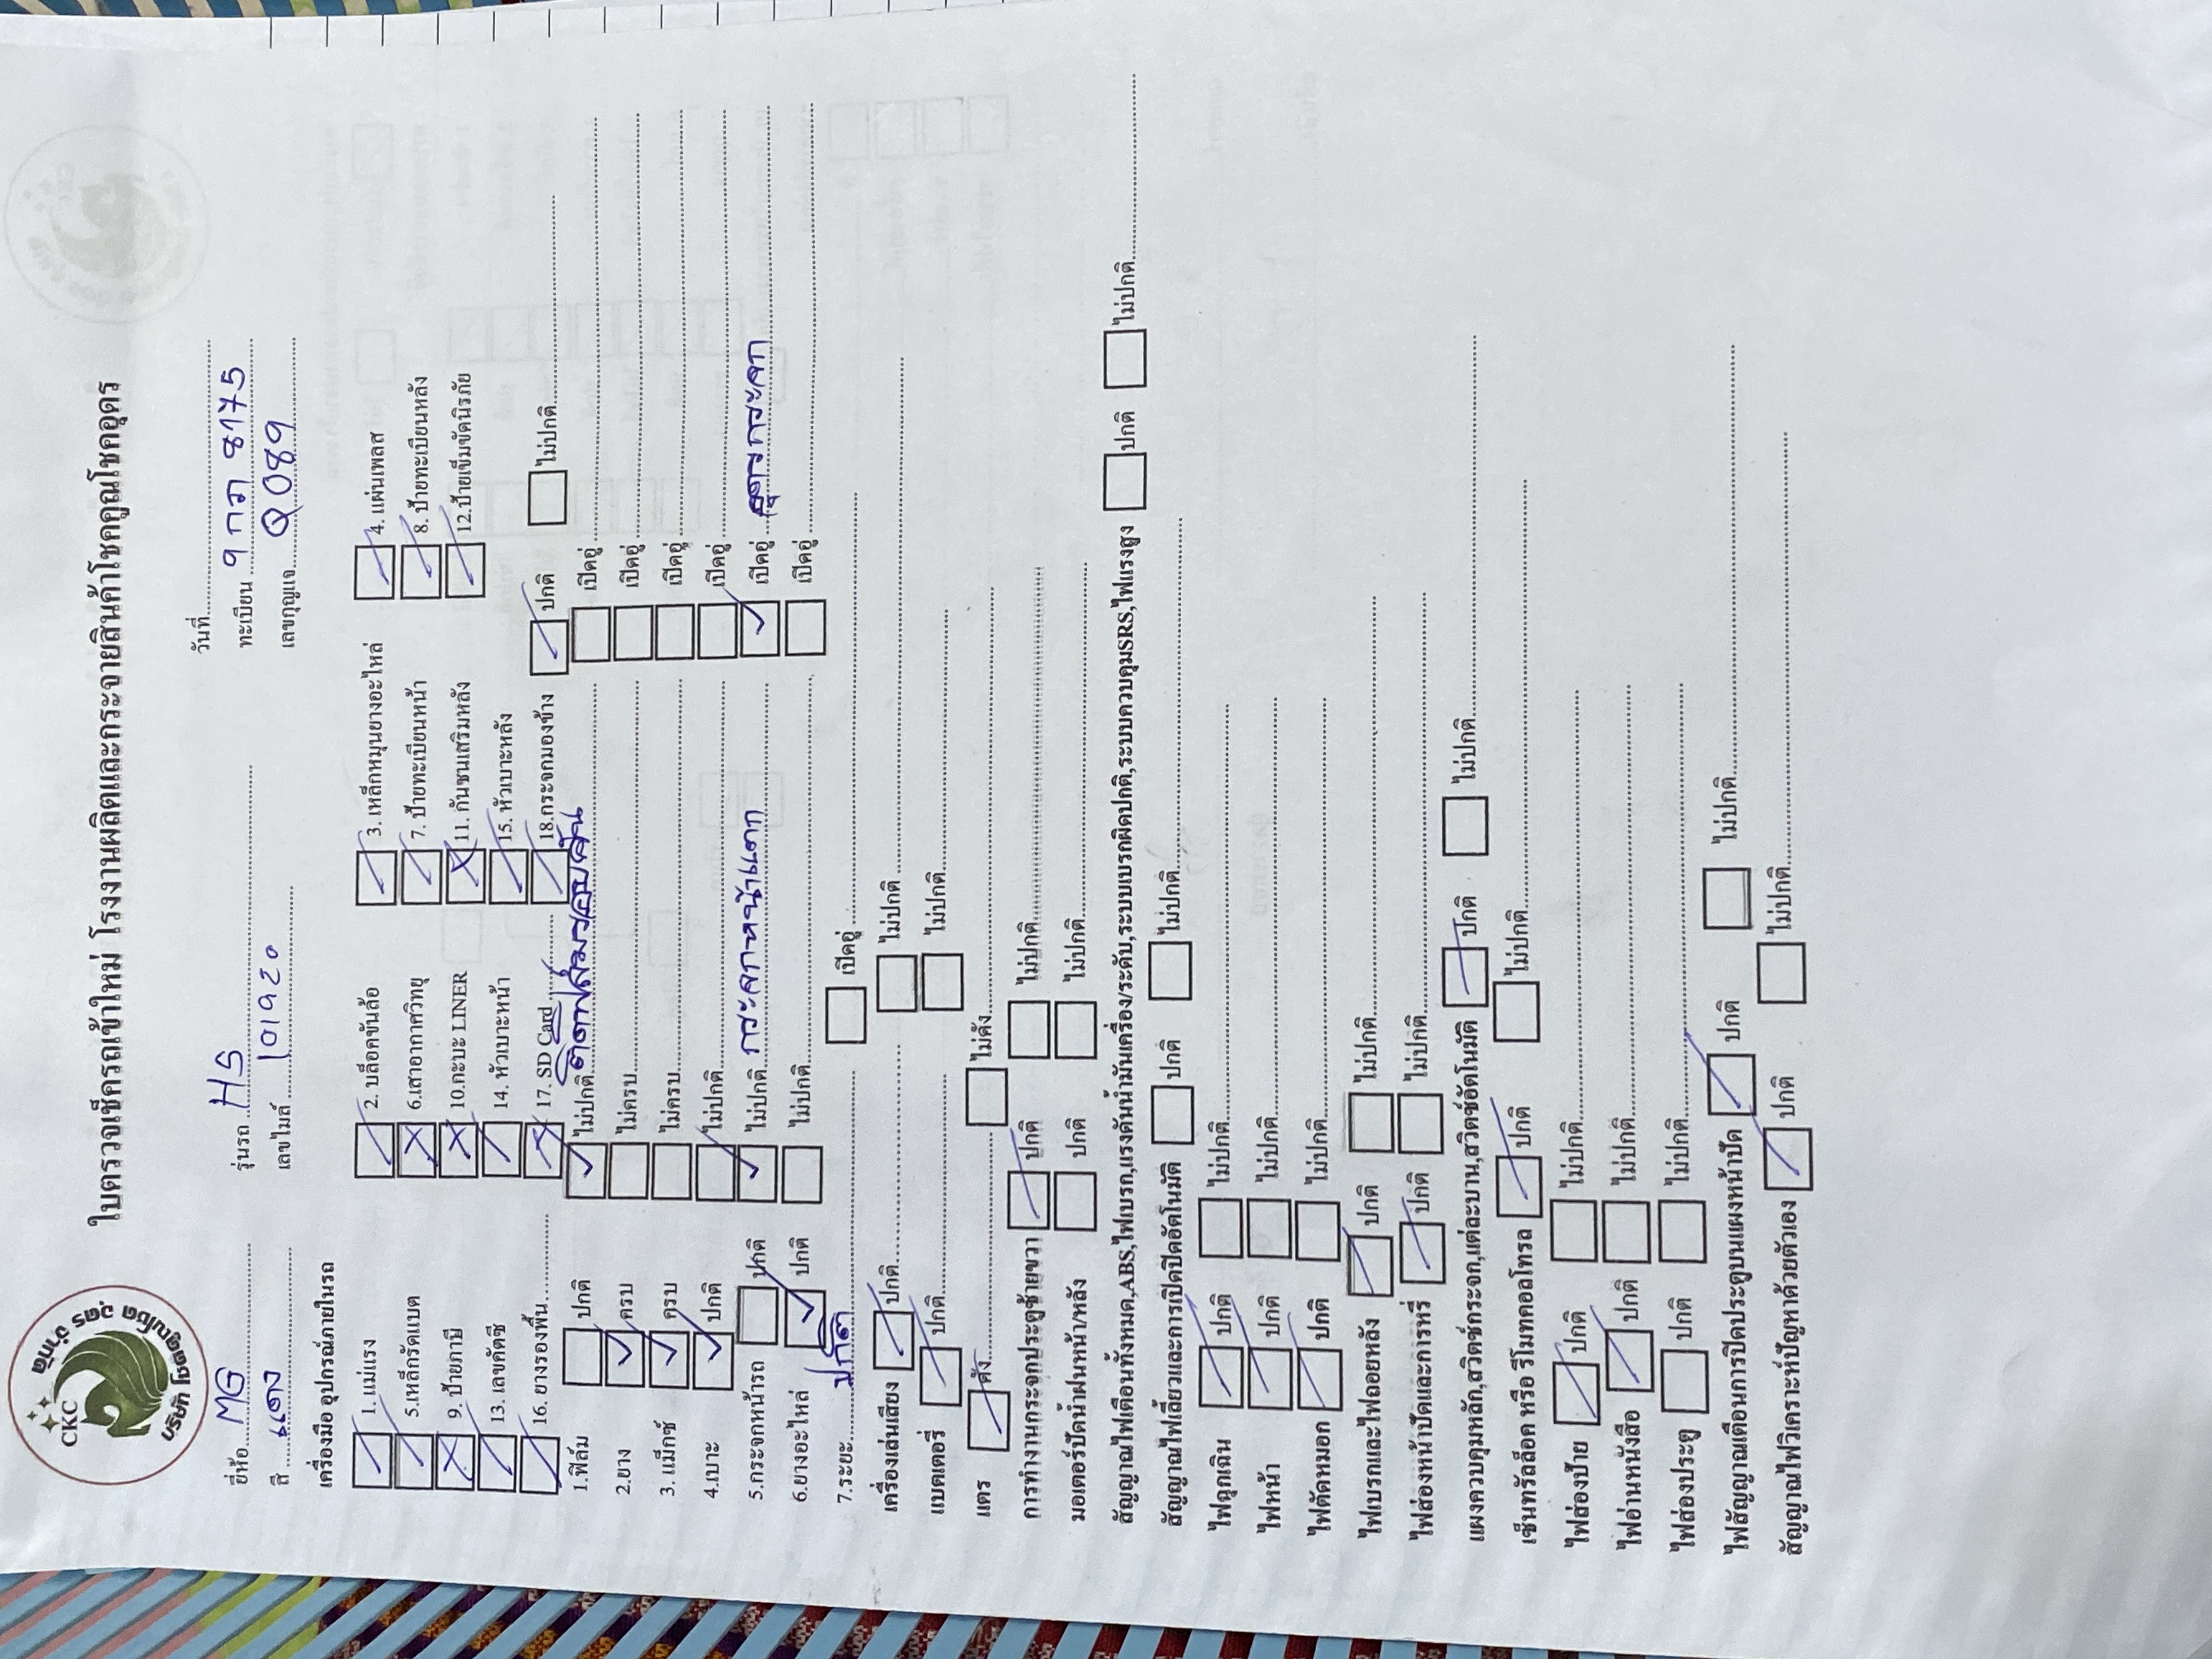 CKC
บริษัท โชคคูณโชค อุดร จำกัด
ใบตรวจเช็ครถเข้าใหม่ โรงงานผลิตและกระจายสินค้าโชคคูณโชคอุดร
วันที่
ยี่ห้อ MG รุ่นรถ HS ทะเบียน 9 กภ 8175
สี แดง เลขไมล์ 101920 เลขกุญแจ Q089
เครื่องมือ อุปกรณ์ภายในรถ
1. แม่แรง 2. บล็อคขันล้อ 3. เหล็กหมุนยางอะไหล่ 4. แผ่นเพลส
5.เหล็กรัดแบต 6.เสาอากาศวิทยุ 7. ป้ายทะเบียนหน้า 8. ป้ายทะเบียนหลัง
9. ป้ายภาษี 10.กะบะ LINER 11. กันชนเสริมหลัง 12.ป้ายเข็มขัดนิรภัย
13. เลขคัตซี 14. หัวเบาะหน้า 15. หัวเบาะหลัง
16. ยางรองพื้น 17. SD Card 18.กระจกมองข้าง ปกติ ไม่ปกติ
1.ฟิล์ม ปกติ ไม่ปกติ ติดฟิล์มรอบคัน เบิคอู่
2.ยาง ครบ ไม่ครบ เบิคอู่
3. แม็กซ์ ครบ ไม่ครบ เบิคอู่
4.เบาะ ปกติ ไม่ปกติ เบิคอู่
5.กระจกหน้ารถ ปกติ ไม่ปกติ กระจกหน้าแตก เบิคอู่ กระจก
6.ยางอะไหล่ ปกติ ไม่ปกติ เบิคอู่
7.ระยะ ปกติ เบิคอู่
เครื่องเล่นเสียง ปกติ ไม่ปกติ
แบตเตอรี่ ปกติ ไม่ปกติ
แตร ดัง ไม่ดัง
การทำงานกระจกประตูซ้ายขวา ปกติ ไม่ปกติ
มอเตอร์ปัดน้ำฝนหน้า/หลัง ปกติ ไม่ปกติ
สัญญาณไฟเตือนทั้งหมด,ABS,ไฟเบรก,แรงดันน้ำมันเครื่อง/ระดับ,ระบบเบรกผิดปกติ,ระบบควบคุมSRS,ไฟแรงสูง ปกติ ไม่ปกติ
สัญญาณไฟเลี้ยวและการเปิดปิดอัตโนมัติ ปกติ ไม่ปกติ
ไฟฉุกเฉิน ปกติ ไม่ปกติ
ไฟหน้า ปกติ ไม่ปกติ
ไฟตัดหมอก ปกติ ไม่ปกติ
ไฟเบรกและไฟถอยหลัง ปกติ ไม่ปกติ
ไฟส่องหน้าปัดและการหรี่ ปกติ ไม่ปกติ
แผงควบคุมหลัก,สวิตช์กระจก,แต่ละบาน,สวิตช์อัตโนมัติ ปกติ ไม่ปกติ
เซ็นทรัลล็อค หรือ รีโมทคอลโทรล ปกติ ไม่ปกติ
ไฟส่องป้าย ปกติ ไม่ปกติ
ไฟอ่านหนังสือ ปกติ ไม่ปกติ
ไฟส่องประตู ปกติ ไม่ปกติ
ไฟสัญญาณเตือนการปิดประตูบนแผงหน้าปัด ปกติ ไม่ปกติ
สัญญาณไฟวิเคราะห์ปัญหาด้วยตัวเอง ปกติ ไม่ปกติ